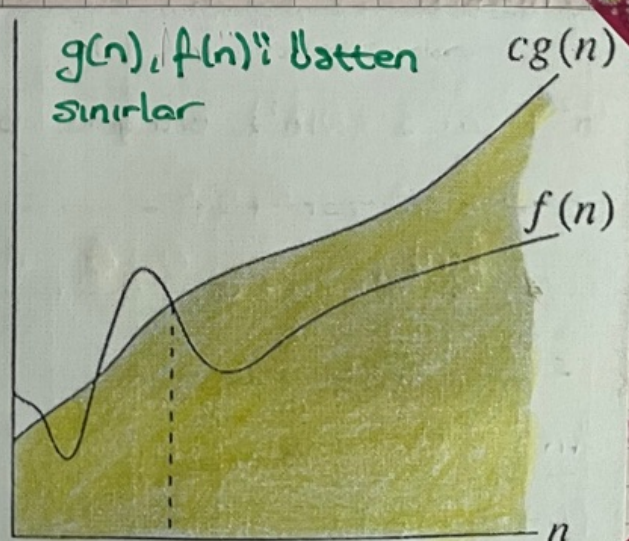 g(n), f(n)'i üstten
sınırlar
cg(n)
f(n)
n